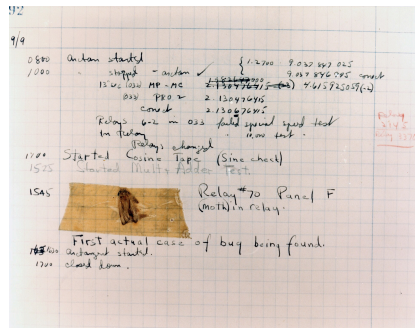 92
9/9
0800 antan started
1000 " stopped - antan ✓ { 1.2700 9.037 847 025
9.037 846 995 correct
13"UC (032) MP-MC 2.130476415 (-3) 4.615925059(-2)
(033) PRO 2 2.130476415
correct 2.130676415
Relays 6-2 in 033 failed special speed test
in relay " 10,000 test.
Relays changed
Relay
1100 Started Cosine Tape (Sine check)
1525 Started Mult+ Adder Test.
1545 Relay #70 Panel F
(moth) in relay.
First actual case of bug being found.
1630 antangent started.
1700 closed down.